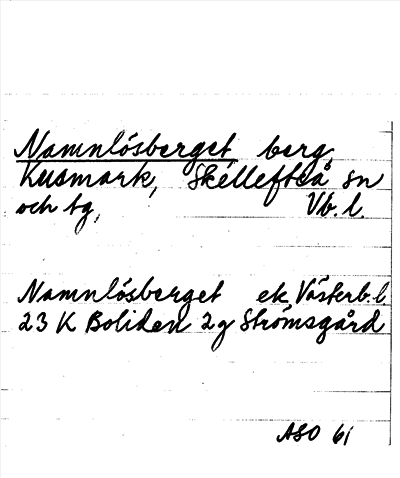 Namnlösberget berg
Kusmark, Skellefteå sn
och tg, Vb. l.
Namnlösberget ek, Västerb. l.
23 K Boliden 2g Strömsgård
ASO 61